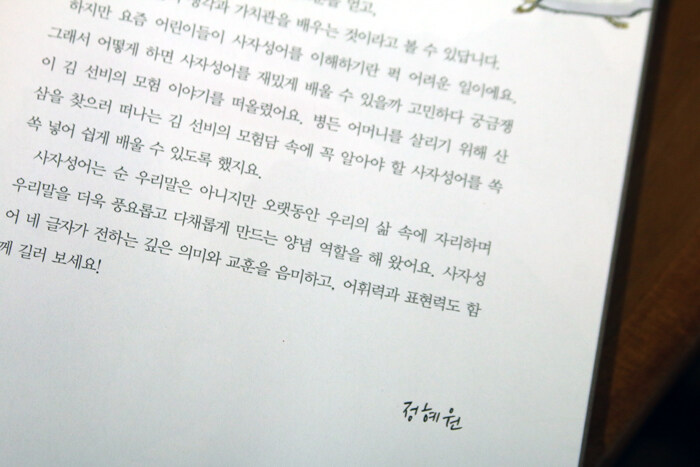 을 얻고,
생각과 가치관을 배우는 것이라고 볼 수 있답니다.
하지만 요즘 어린이들이 사자성어를 이해하기란 퍽 어려운 일이에요.
그래서 어떻게 하면 사자성어를 재밌게 배울 수 있을까 고민하다 궁금쟁
이 김 선비의 모험 이야기를 떠올렸어요. 병든 어머니를 살리기 위해 산
삼을 찾으러 떠나는 김 선비의 모험담 속에 꼭 알아야 할 사자성어를 쏙
쏙 넣어 쉽게 배울 수 있도록 했지요.
사자성어는 순 우리말은 아니지만 오랫동안 우리의 삶 속에 자리하며
우리말을 더욱 풍요롭고 다채롭게 만드는 양념 역할을 해 왔어요. 사자성
어 네 글자가 전하는 깊은 의미와 교훈을 음미하고, 어휘력과 표현력도 함
께 길러 보세요!
정혜원